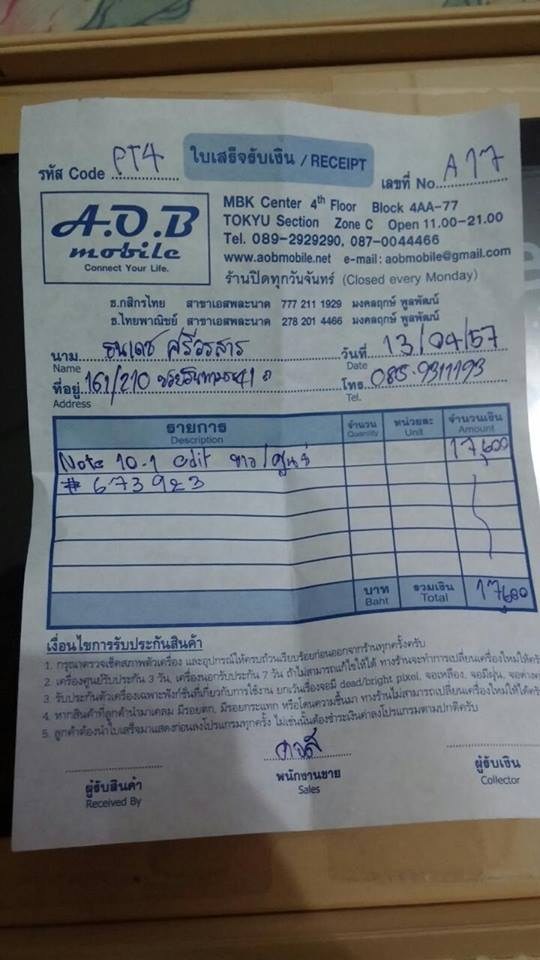 ใบเสร็จรับเงิน / RECEIPT
รหัส Code PT4
เลขที่ No. A17
A.O.B mobile
Connect Your Life.
MBK Center 4th Floor Block 4AA-77
TOKYU Section Zone C Open 11.00-21.00
Tel. 089-2929290, 087-0044466
www.aobmobile.net e-mail: aobmobile@gmail.com
ร้านปิดทุกวันจันทร์ (Closed every Monday)
ธ.กสิกรไทย สาขาเอสพละนาด 777 211 1929 มงคลฤกษ์ พูลพัฒน์
ธ.ไทยพาณิชย์ สาขาเอสพละนาด 278 201 4466 มงคลฤกษ์ พูลพัฒน์
นาม ธนเดช ศรีอรสาร วันที่ 13/04/57
Name Date
ที่อยู่ 161/210 โทร 085-9311193
Address Tel.
รายการ จำนวน หน่วยละ จำนวนเงิน
Description Quantity Unit Amount
Note 10.1 edit ขาว/ศูนย์ 17,600
# 673923
บาท รวมเงิน 17,600
Baht Total
เงื่อนไขการรับประกันสินค้า
1. กรุณาตรวจเช็คสภาพตัวเครื่อง และอุปกรณ์ให้ครบถ้วนเรียบร้อยก่อนออกจากร้านทุกครั้งครับ
2. เครื่องศูนย์รับประกัน 3 วัน, เครื่องนอกรับประกัน 7 วัน ถ้าไม่สามารถแก้ไขให้ได้ ทางร้านจะทำการเปลี่ยนเครื่องใหม่ให้คร
3. รับประกันตัวเครื่องเฉพาะฟังก์ชั่นที่เกี่ยวกับการใช้งาน ยกเว้นเรื่องจอมี dead/bright pixel, จอเหลือง, จอมีฝุ่น, จอต่าง
4. หากสินค้าที่ลูกค้านำมาเคลม มีรอยตก, มีรอยกระแทก หรือโดนความชื้นมา ทางร้านไม่สามารถเปลี่ยนเครื่องใหม่ให้ได้ครับ
5. ลูกค้าต้องนำใบเสร็จมาแสดงก่อนลงโปรแกรมทุกครั้ง ไม่เช่นนั้นต้องชำระเงินค่าลงโปรแกรมตามปกติครับ
ผู้รับสินค้า พนักงานขาย ผู้รับเงิน
Received By Sales Collector